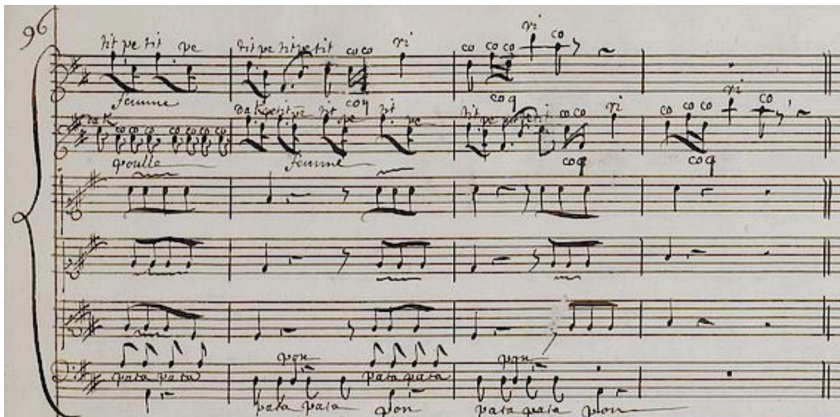 96
tit pe tit pe tit pe tit pe tit co co ri co co co ri co
femme coq coq
co co co co co co co tit pe tit pe tit pe co co ri co co co ri co
poulle femme coq coq
pon pon
pata pata pata pata
pata pata pon pata pata pon